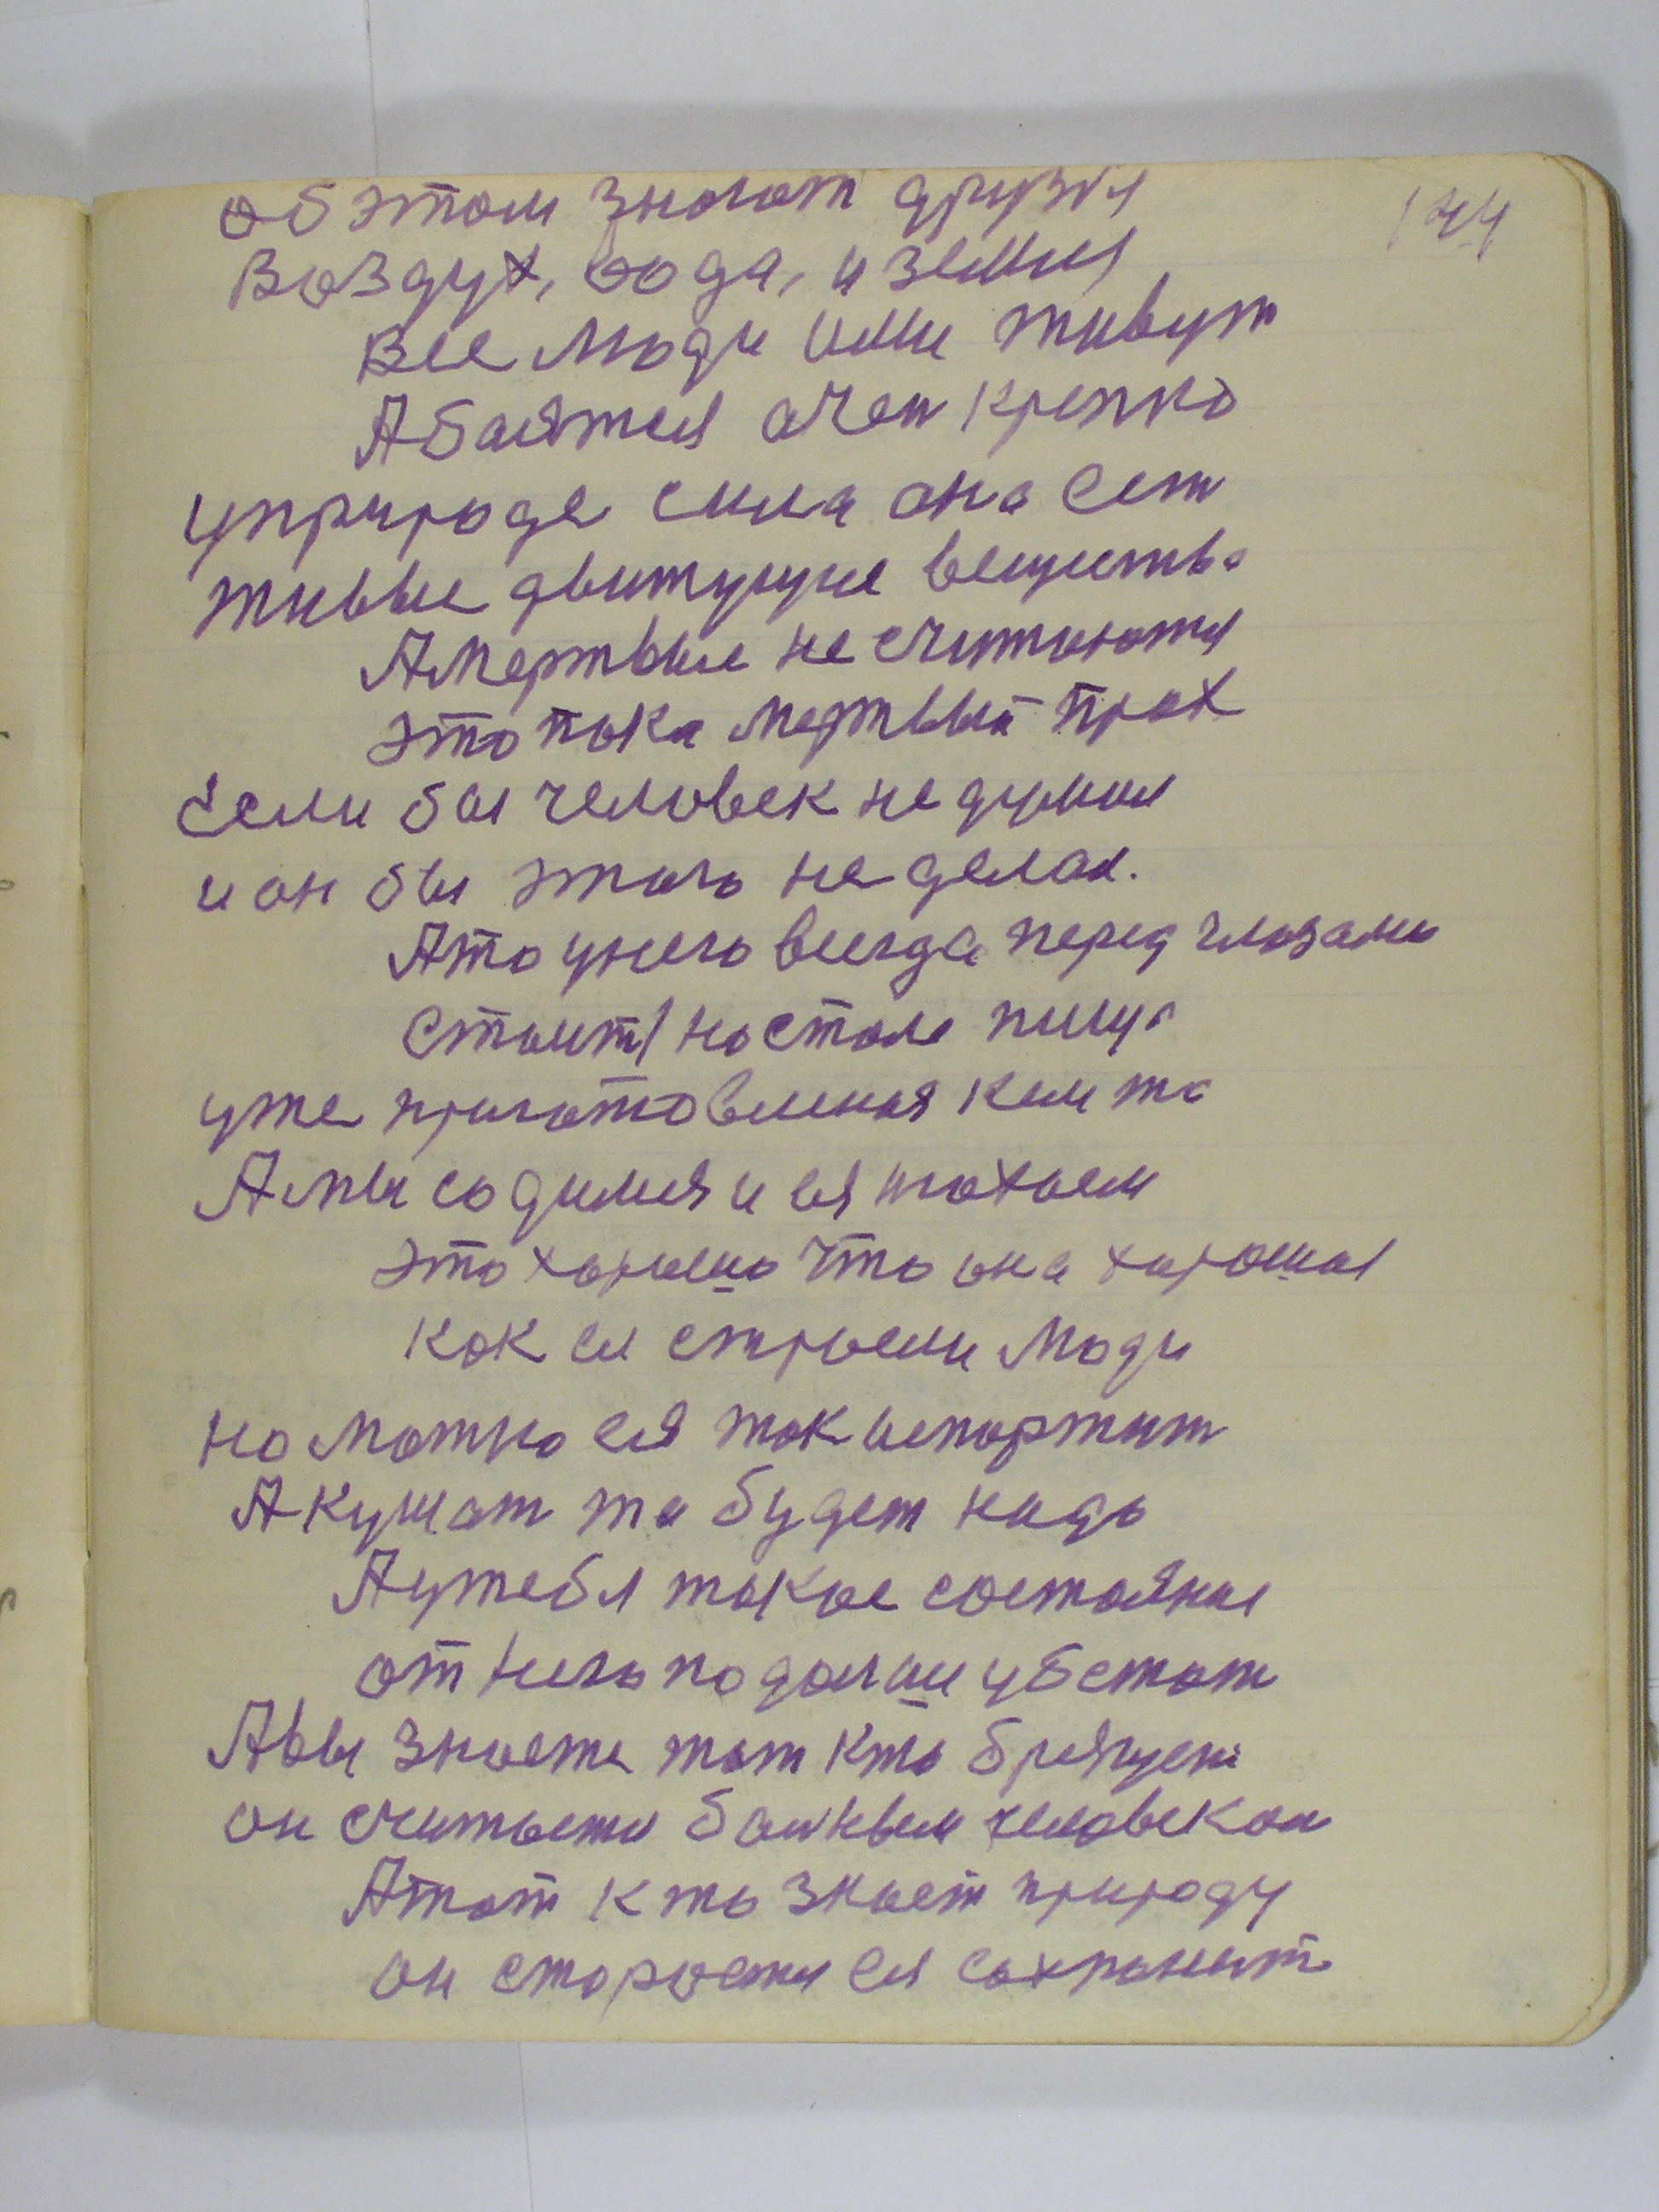 об этом знают друзъя
144
Воздух, вода, и земля
Все люди ими живут
А баятся очен крепко
у природе сила она ест
живые движущие вещества
А мертвые не считаются
это пока мертвый прах
Если бы человек не думал
и он бы этого не делал.
А то у него всегда перед глазами
стоит на столе пища
уже приготовленая кем то
А мы содимся и ея
это хорошо что она хорошая
Как ея строели люди
но можно ея так испортит
А кушат то будет надо
А у тебя такое состаяния
от него подольши убстат
А вы знаете тот кто
он считаетя больным человеком
А тот кто знает природу
он стораетя ея сохранит